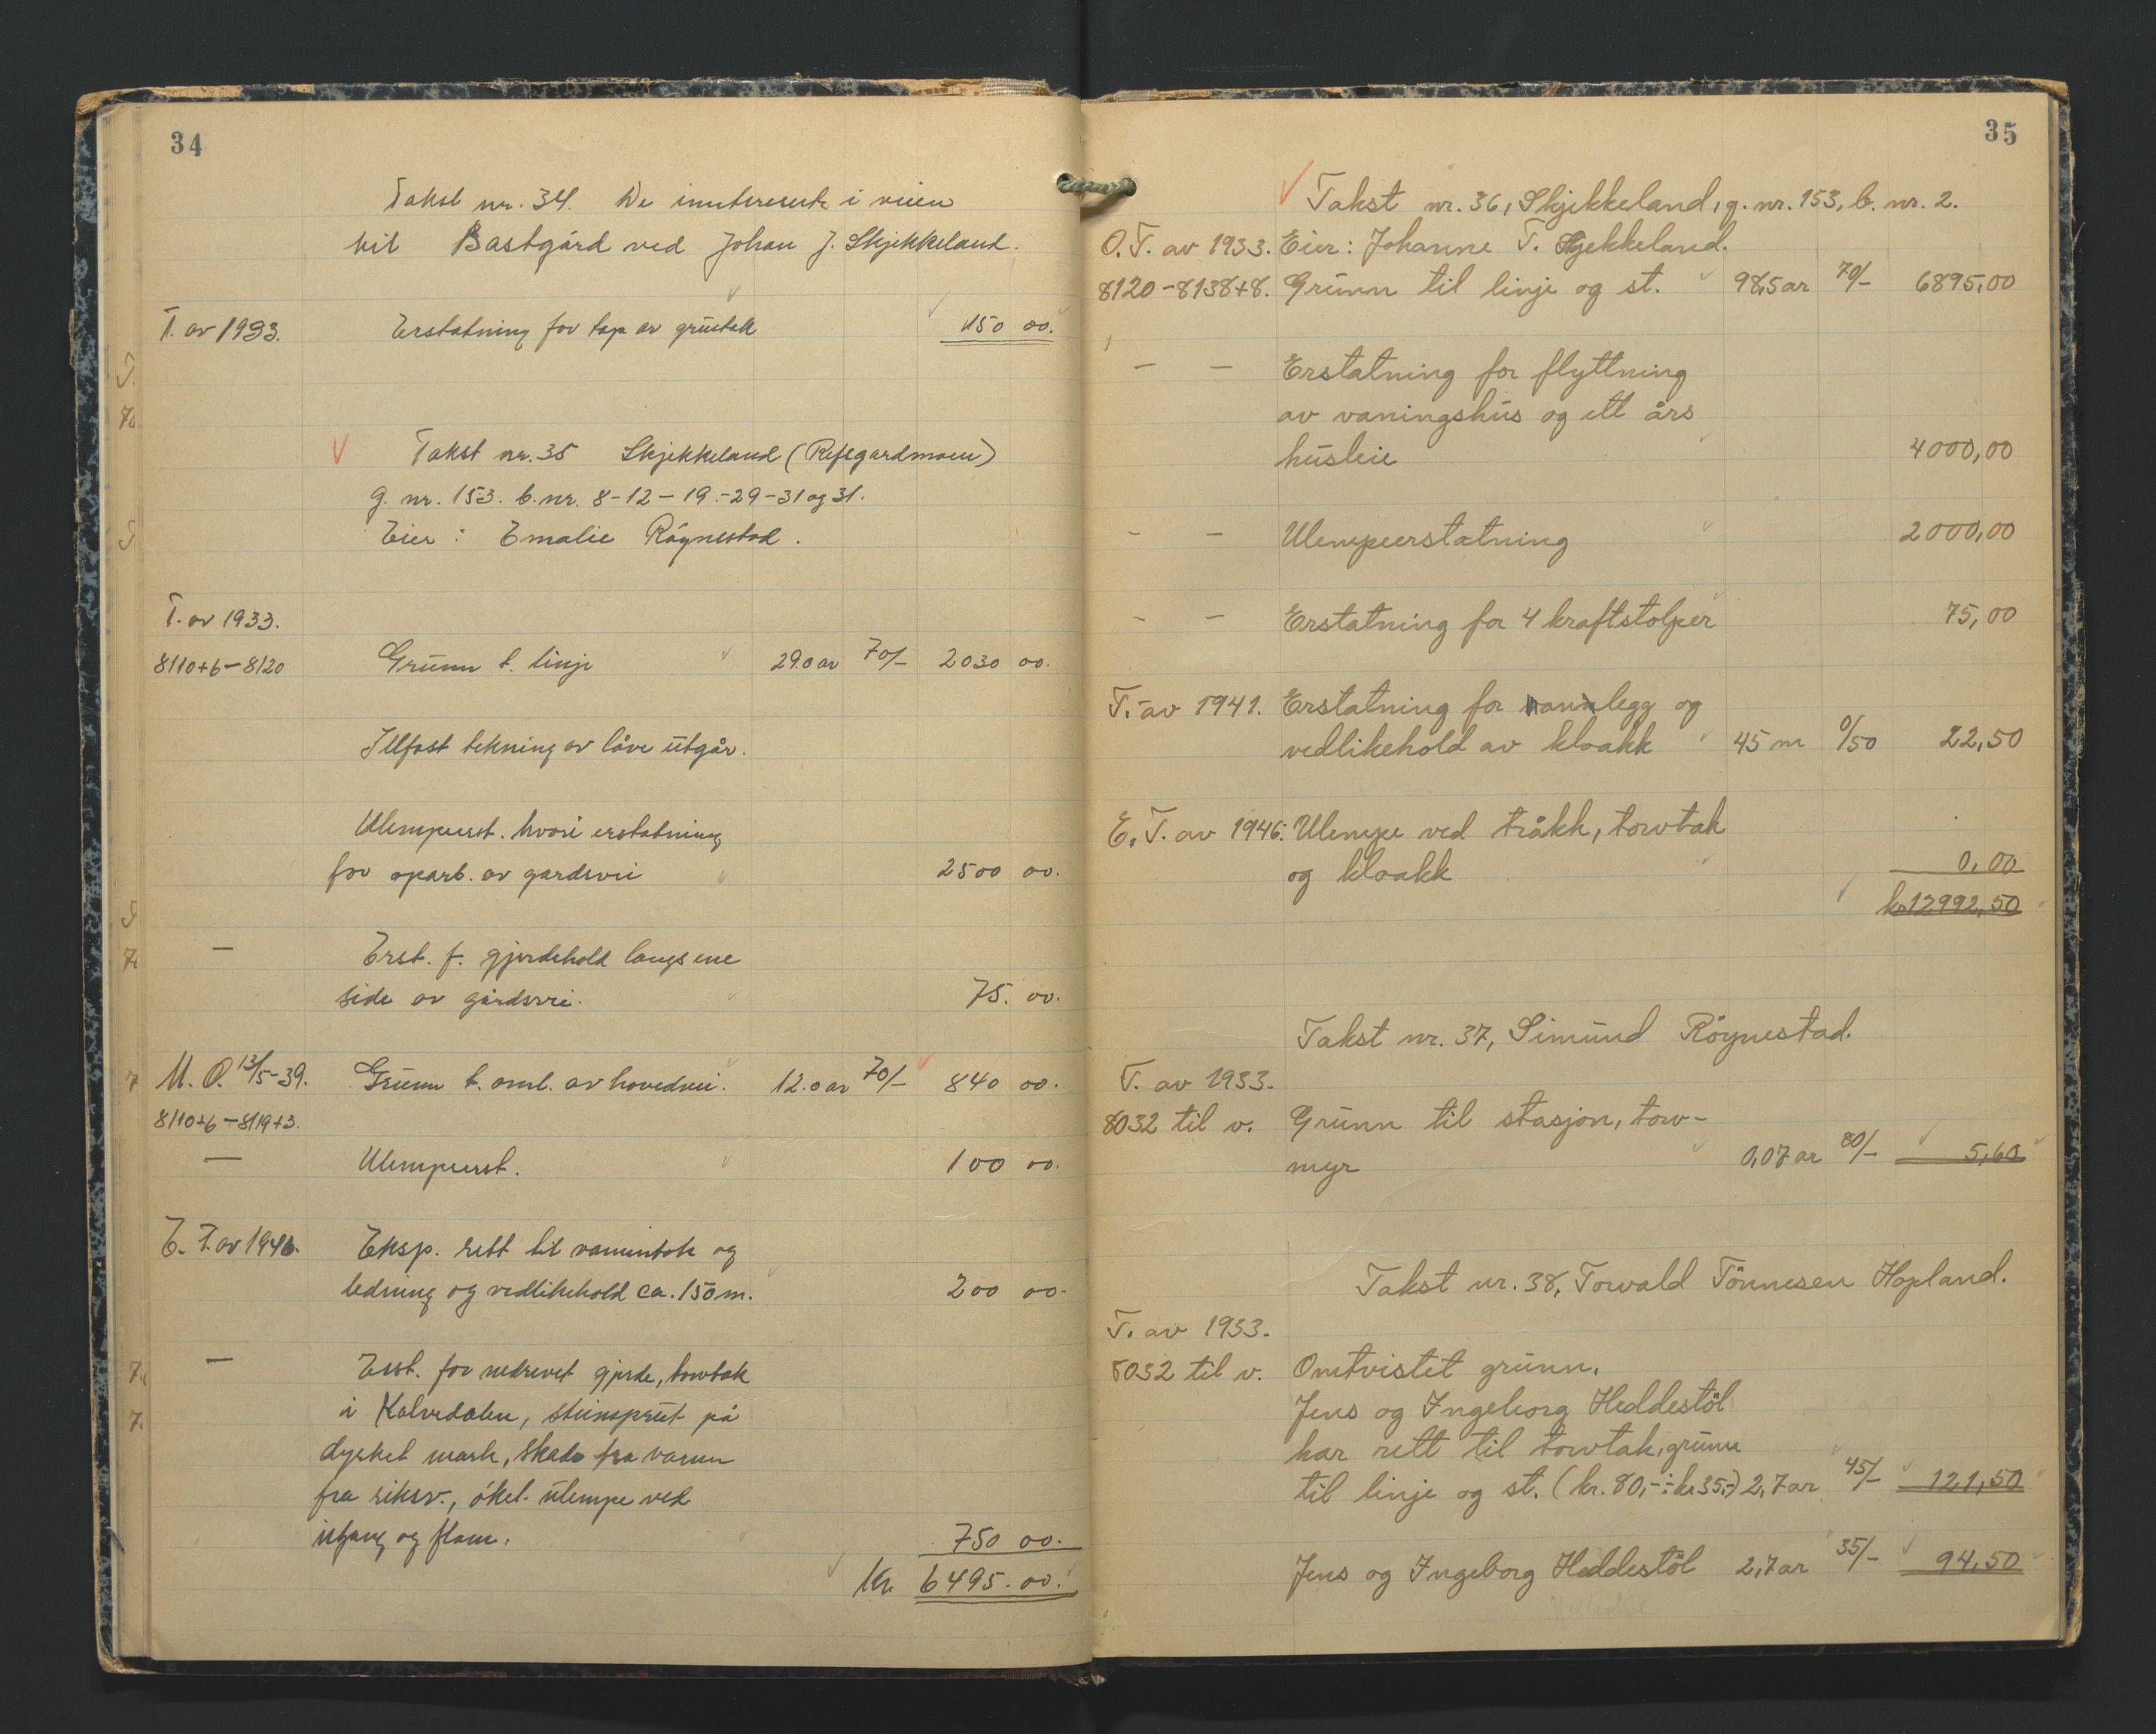 34
Takst nr. 34. De innteresserte i veien
til Bastgård ved Johan J. Skjekkeland.
T. av 1933. Erstatning for tap av grustak 150 00.
Takst nr. 35 Skjekkeland (Refsgardmoen)
g. nr. 153. b. nr. 8-12-19.-29-31 og 31.
Eier: Emalie Röynestad.
T. av 1933.
8110+6-8120 Grunn t. linje 29.0 ar 70/- 2030 00.
Ilfast tekning av låve utgår.
Ulempeerst. hvori erstatning
for oparb. av gardsvei 2500 00.
— Erst. f. gjerdehold langs ene
side av gårdsvei. 75. 00.
M. O. 13/5-39. Grunn t. oml. av hovedvei. 12.0 ar 70/- 840 00.
8110+6-8119+3.
— Ulempeerst. 100 00.
E. T. av 1946. Eksp. rett til vanninntak og
ledning og vedlikehold ca. 150 m. 200 00.
— Erst. for nedrevet gjerde, torvtak
i Kalvedalen, steinsprut på
dyrket mark, skade fra vann
fra riksv., økel. ulempe ved
utgang og flom. 750 00.
Kr. 6495.00.
35
Takst nr. 36, Skjekkeland, g. nr. 153, b. nr. 2.
O. T. av 1933. Eier: Johanne T. Skjekkeland.
8120-8138+8. Grunn til linje og st. 98,5 ar 70/- 6895,00
— — Erstatning for flyttning
av vaningshus og ett års
husleie 4000,00
- - Ulempeerstatning 2000,00
- - Erstatning for 4 kraftstolper 75,00
T. av 1941. Erstatning for vannlegg og
vedlikehold av kloakk 45 m 0/50 22,50
E. T. av 1946. Ulempe ved tråkk, torvtak
og kloakk 0,00
kr. 12992,50
Takst nr. 37, Simund Röynestad.
T. av 1933.
8032 til v. Grunn til stasjon, torv-
myr 0,07 ar 80/- 5,60
Takst nr. 38, Torvald Tönnesen Hopland.
T. av 1933.
8032 til v. Omtvistet grunn.
Jens og Ingeborg Heddestöl
har rett til torvtak, grunn
til linje og st. (kr. 80,- ÷ kr 35,-) 2,7 ar 45/- 121,50
Jens og Ingeborg Heddestöl 2,7 ar 35/- 94,50